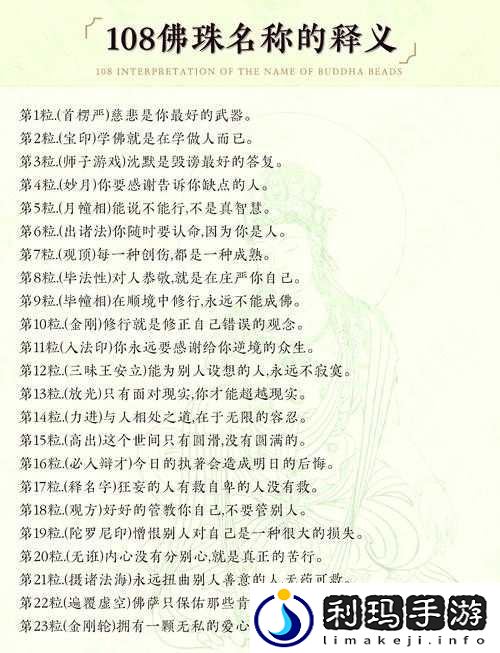 108佛珠名称的释义
108 INTERPRETATION OF THE NAME OF BUDDHA BEADS
第1粒.(首楞严)慈悲是你最好的武器。
第2粒.(宝印)学佛就是在学做人而已。
第3粒.(师子游戏)沈默是毁谤最好的答复。
第4粒.(妙月)你要感谢告诉你缺点的人。
第5粒.(月幢相)能说不能行,不是真智慧。
第6粒.(出诸法)你随时要认命,因为你是人。
第7粒.(观顶)每一种创伤,都是一种成熟。
第8粒.(毕法性)对人恭敬,就是在庄严你自己。
第9粒.(毕幢相)在顺境中修行,永远不能成佛。
第10粒.(金刚)修行就是修正自己错误的观念。
第11粒.(入法印)你永远要感谢给你逆境的众生。
第12粒.(三昧王安立)能为别人设想的人,永远不寂寞。
第13粒.(放光)只有面对现实,你才能超越现实。
第14粒.(力进)与人相处之道,在于无限的容忍。
第15粒.(高出)这个世间只有圆滑,没有圆满的。
第16粒.(必入辩才)今日的执著会造成明日的后悔。
第17粒.(释名字)狂妄的人有救自卑的人没有救。
第18粒.(观方)好好的管教你自己,不要管别人。
第19粒.(陀罗尼印)憎恨别人对自己是一种很大的损失。
第20粒.(无诳)内心没有分别心,就是真正的苦行。
第21粒.(摄诸法海)永远扭曲别人善意的人,无药可救。
第22粒(遍覆虚空)佛萨只保佑那些肯
第23粒(金刚轮)拥有一颗无私的爱心
利玛手游
limakeji.info